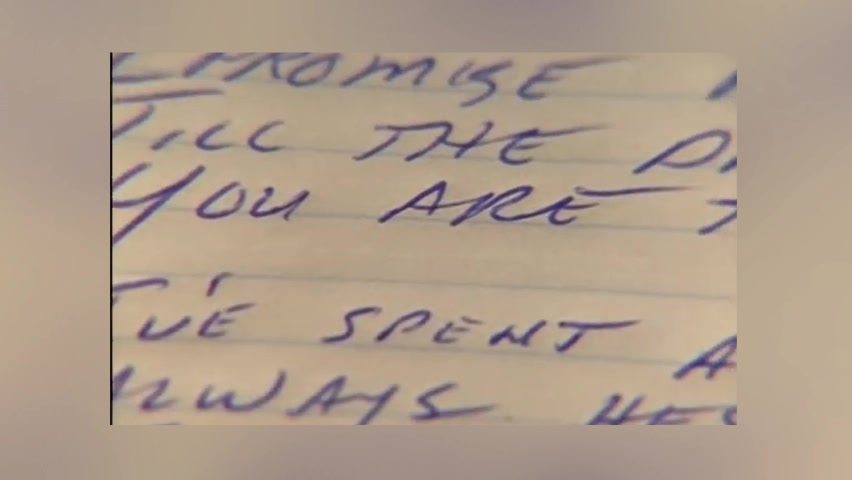 I PROMISE
TILL THE
YOU ARE
I'VE SPENT A
ALWAYS